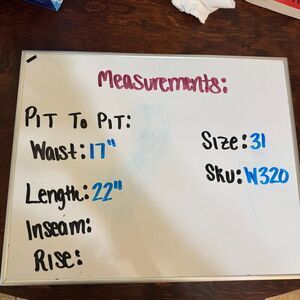 Measurements:
Pit To Pit:
Waist: 17"
Length: 22"
Inseam:
Rise:
Size: 31
Sku: W320